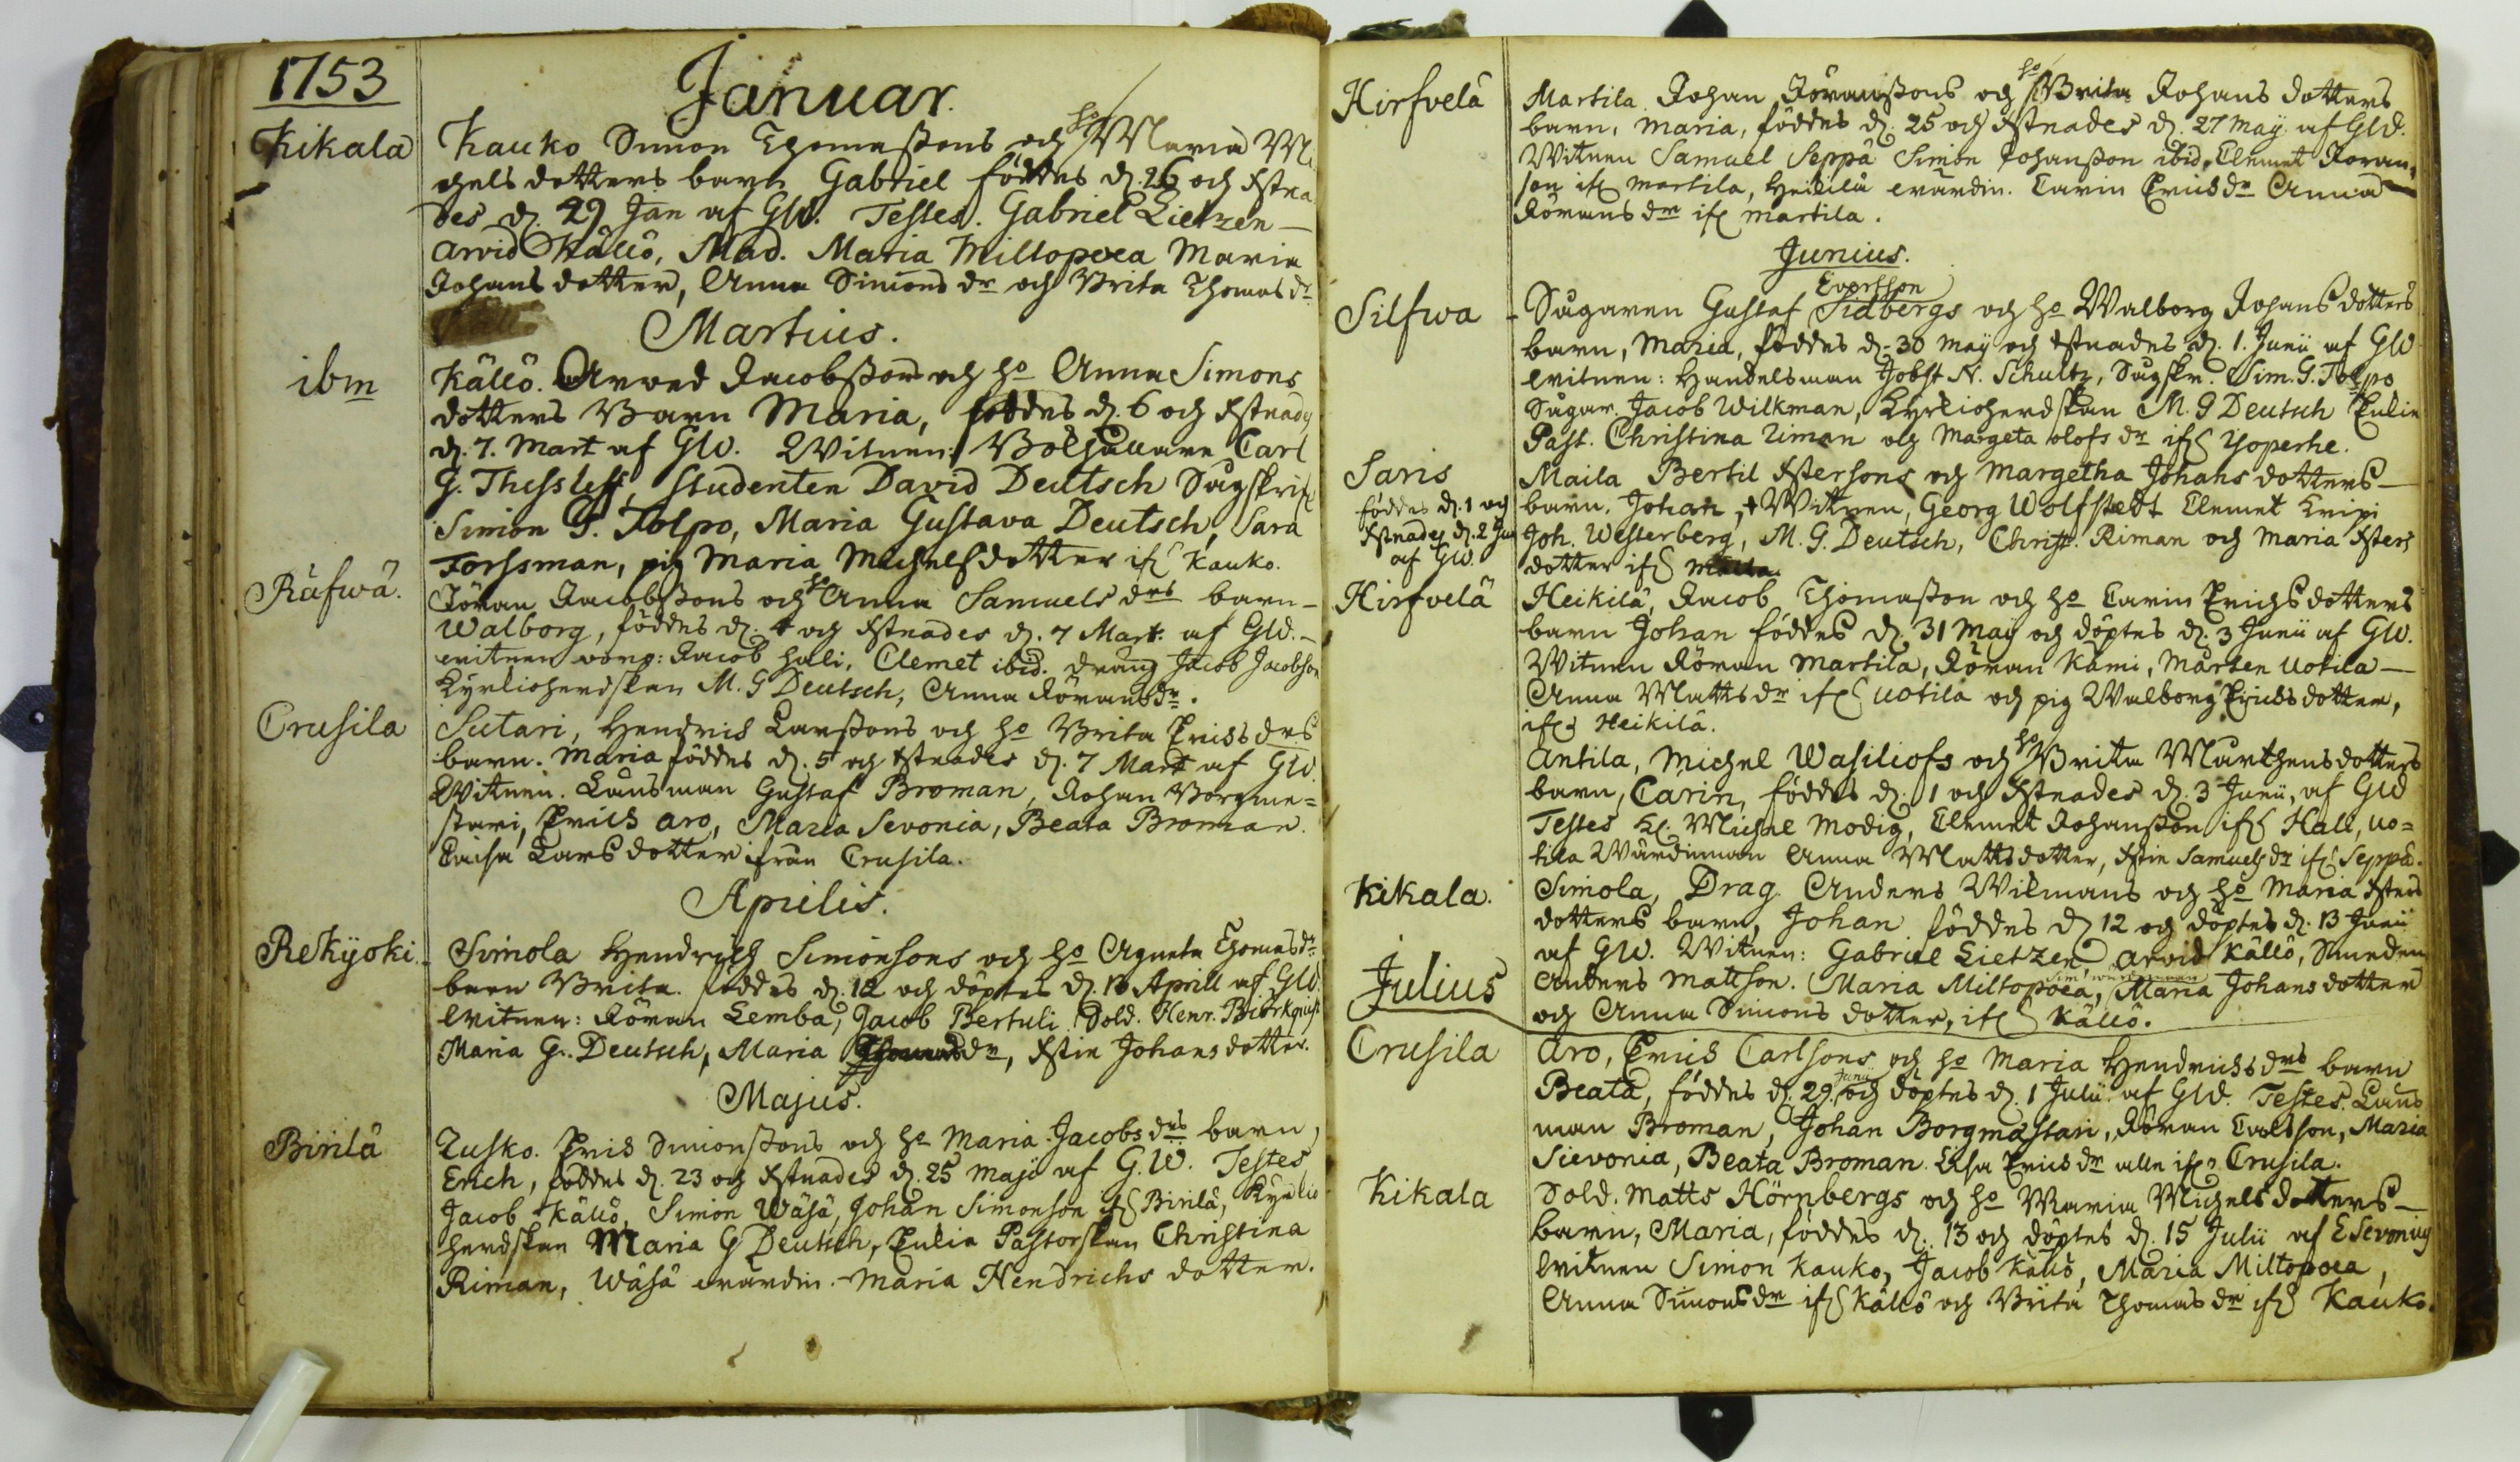 1753
Januar.
Kikala
Kauko Simon Thomassons och ho Maria Mi-
chelsdotters barn Gabriel föddes d. 26 och Xstna
des d. 29 Jan af GW. Testes. Gabriel Lietzen
Arvid Källö, Mad. Maria Miltopoea Maria
Johansdotter, Anna Simons dr och Brita Thomas dr
Martius.
ibm
Källö. Arwed Jacobsson och ho Anna Simons
dotters Barn Maria, föddes d. 6 och Xstnades
d. 7. Mart af GW. Witnen: Bokhållare Carl
G. Thesleff, Studenten David Deutsch Sågskrif
Simon G. Tolpo, Maria Gustava Deutsch, Sara
Forssman, pig Maria Michelsdotter ifr Kauko.
Räfwä.
Jöran Jacobssons och ho Anna Samuels drs barn
Walborg, föddes d. 4 och Xstnades d. 7 Mart. af GW.
witnen voro: Jacob Hali, Clemet ibid. dräng Jacob Jacobson
Kyrkioherdskan M. G Deutsch, Anna Jörans dr.
Crusila
Sutari, Hendrich Larssons och ho Brita Erichs drs
barn. Maria föddes d. 5 och Xstnades d. 7 Mart af GW.
Witnen. Länsman Gustaf Broman, Johan Borgme=
stari, Erich Aro, Maria Sevonia, Beata Broman.
Caisa Larsdotter ifrån Crusila.
Aprilis.
Rekyoki
Simola Hendrich Simonsons och ho Agneta Thomas dr
barn Brita. föddes d. 12 och döptes d. 1 Aprill af GW.
Witnen: Jöran Lemba, Jacob Bertuli Sold. Henr. Biörkqvist
Maria G. Deutsch, Maria dr, Xstin Johansdotter.
Majus.
Birilä
Zusko. Erich Simonssons och ho Maria Jacobs drs barn,
Erich, föddes d. 23 och Xstnades d. 25 Maji af G.W. Testes
Jacob Källö, Simon Wäsä, Johan Simonson ifr Birilä, Kyrkio
herdskan Maria G Deutsch, Enkia Pastorskan Christina
Riman, Wäsä wärdin. Maria Hendrichs dotter.
Hirfvelä
Martila Johan Jöranssons och ho Brita Johans dotters
barn, Maria, föddes d. 25 och Xstnades d. 27 May af GW.
Witnen Samuel Seppä Simon Johansson ibid, Clemet Joran-
son ifr Martila, Heikilä wärdin. Carin Erichs dr Anna
Jörans dr ifr Martila.
Junius.
Silfwa
Evertsson
Sågaren Gustaf Sidbergs och ho Walborg Johansdotters
barn, Maria, föddes d. 30 May och Xstnades d. 1. Junii af GW
Witnen: Handelsman Jobst N. Schultz, Sågskr. Sim. G. Tolpo
Sågar. Jacob Wilkman, Kyrkioherdskan M. G Deutsch Enkia
Past. Christina Riman och Margeta Olofs dr ifr Yoperhe.
Saris
föddes d. 1 och
Xstnades d. 2 Jun
af GW.
Maila Bertil Xstersons och Margetha Johans dotters
barn. Johan, Witnen, Georg Wolfstedt Clemet Knipi
Joh. Westerberg, M. G. Deutsch, Christ. Riman och Maria Xsters
dotter ifr Maila
Hirfvelä
Heikilä, Jacob Thomasson och ho Carin Erichsdotters
barn Johan föddes d. 31 May och döptes d. 3 Junii af GW.
Witnen Jöran Martila, Jöran Kämi, Mårten Uotila
Anna Matts dr ifr Uotila och pig Walborg Erichsdotter,
ifr Heikilä.
Antila, Michel Wasiliofs och ho Brita Marthensdotters
barn, Carin, föddes d. 1 och Xstnades d. 3 Junii, af GW
Testes Michel Modig, Clemet Johansson ifr Hall, Uo=
tila Wärdinnan Anna Mattsdotter, Xstin Samuels dr ifr Seppä.
Kikala.
Simola, Drag. Anders Wilmans och ho Maria Xsters
dotters barn, Johan föddes d 12 och döptes d. 13 Junii
af GW. Witnen: Gabriel Lietzen Arvid Källö, Smeden
Anders Mattson. Maria Miltopoea, Maria Johansdotter
och Anna Simonsdotter, ifr Källö.
Julius
Crusila
Aro, Erich Carlsons och ho Maria Hendrichs drs barn
Beata, föddes d. 29. Junii och döptes d. 1 Julii af GW. Testes. Läns
man Broman, Johan Borgmästari, Jöran Carlsson, Maria
Sievonia, Beata Broman. Lisa Erichs dr alle ifr Crusila.
Kikala
Sold. Matts Hörnbergs och ho Maria Michelsdotters
barn, Maria, föddes d. 13 och döptes d. 15 Julii af E Sevonius
Witnen Simon Kauko, Jacob Källö, Maria Miltopoea,
Anna Simons dr ifr Källö och Brita Thomas dr ifr Kauko.